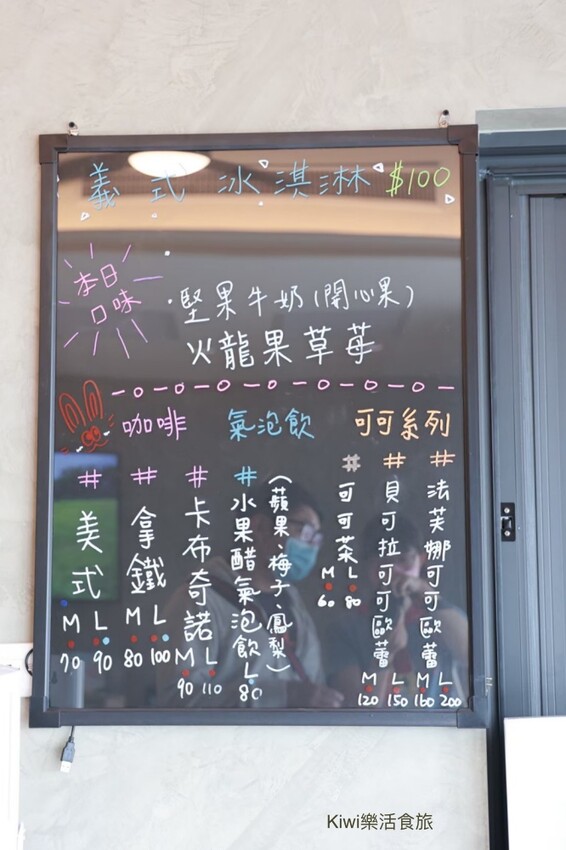 義式冰淇淋 $100
本日口味
·堅果牛奶(開心果)
火龍果草莓
咖啡 氣泡飲 可可系列
# 美式
M L
70 90
# 拿鐵
M L
80 100
# 卡布奇諾
M L
90 110
# 水果醋氣泡飲
(蘋果、梅子、鳳梨)
L
80
# 可可茶
M L
60 80
# 貝可拉可可歐蕾
M L
120 150
# 法芙娜可可歐蕾
M L
160 200
Kiwi樂活食旅